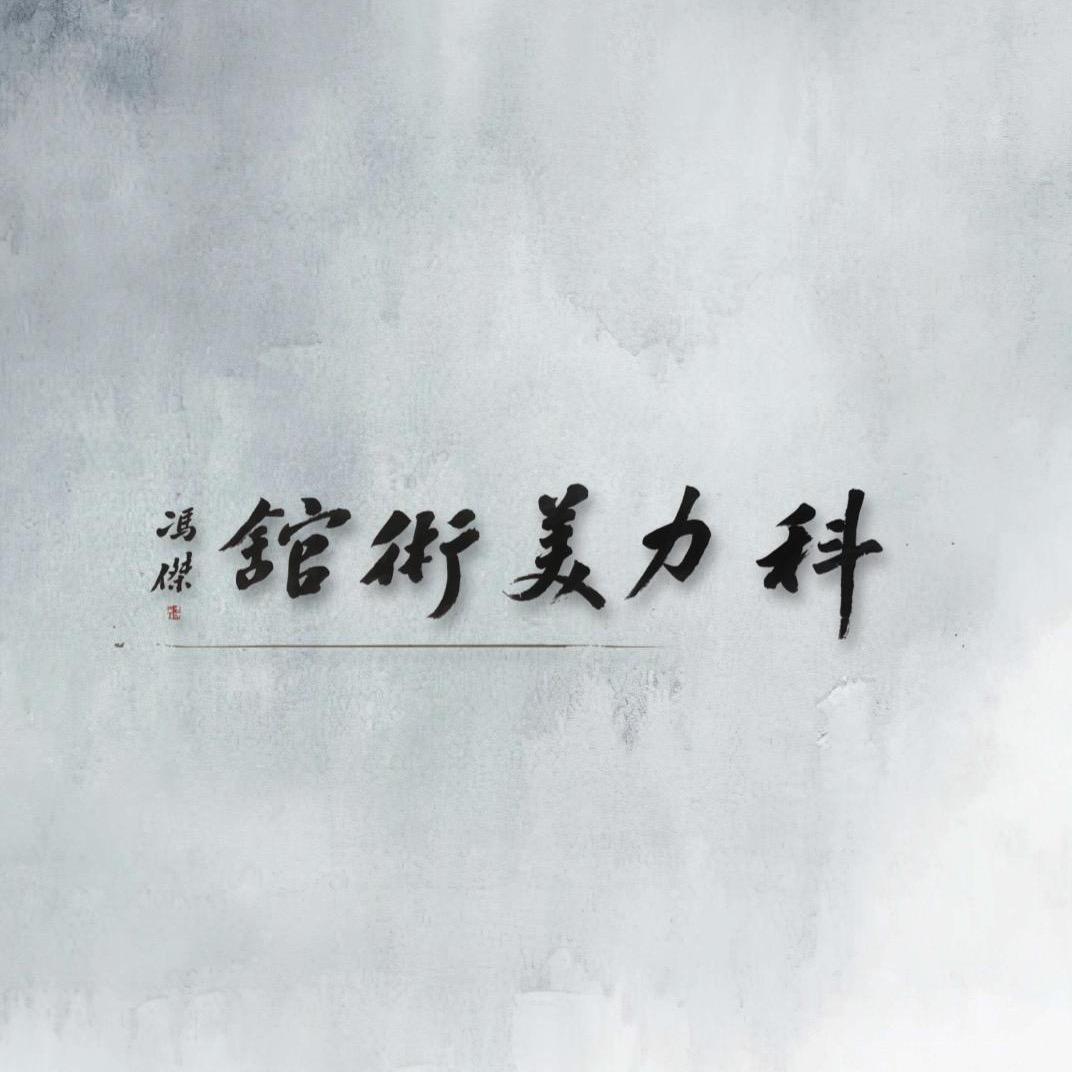 科力美術舘
馮傑